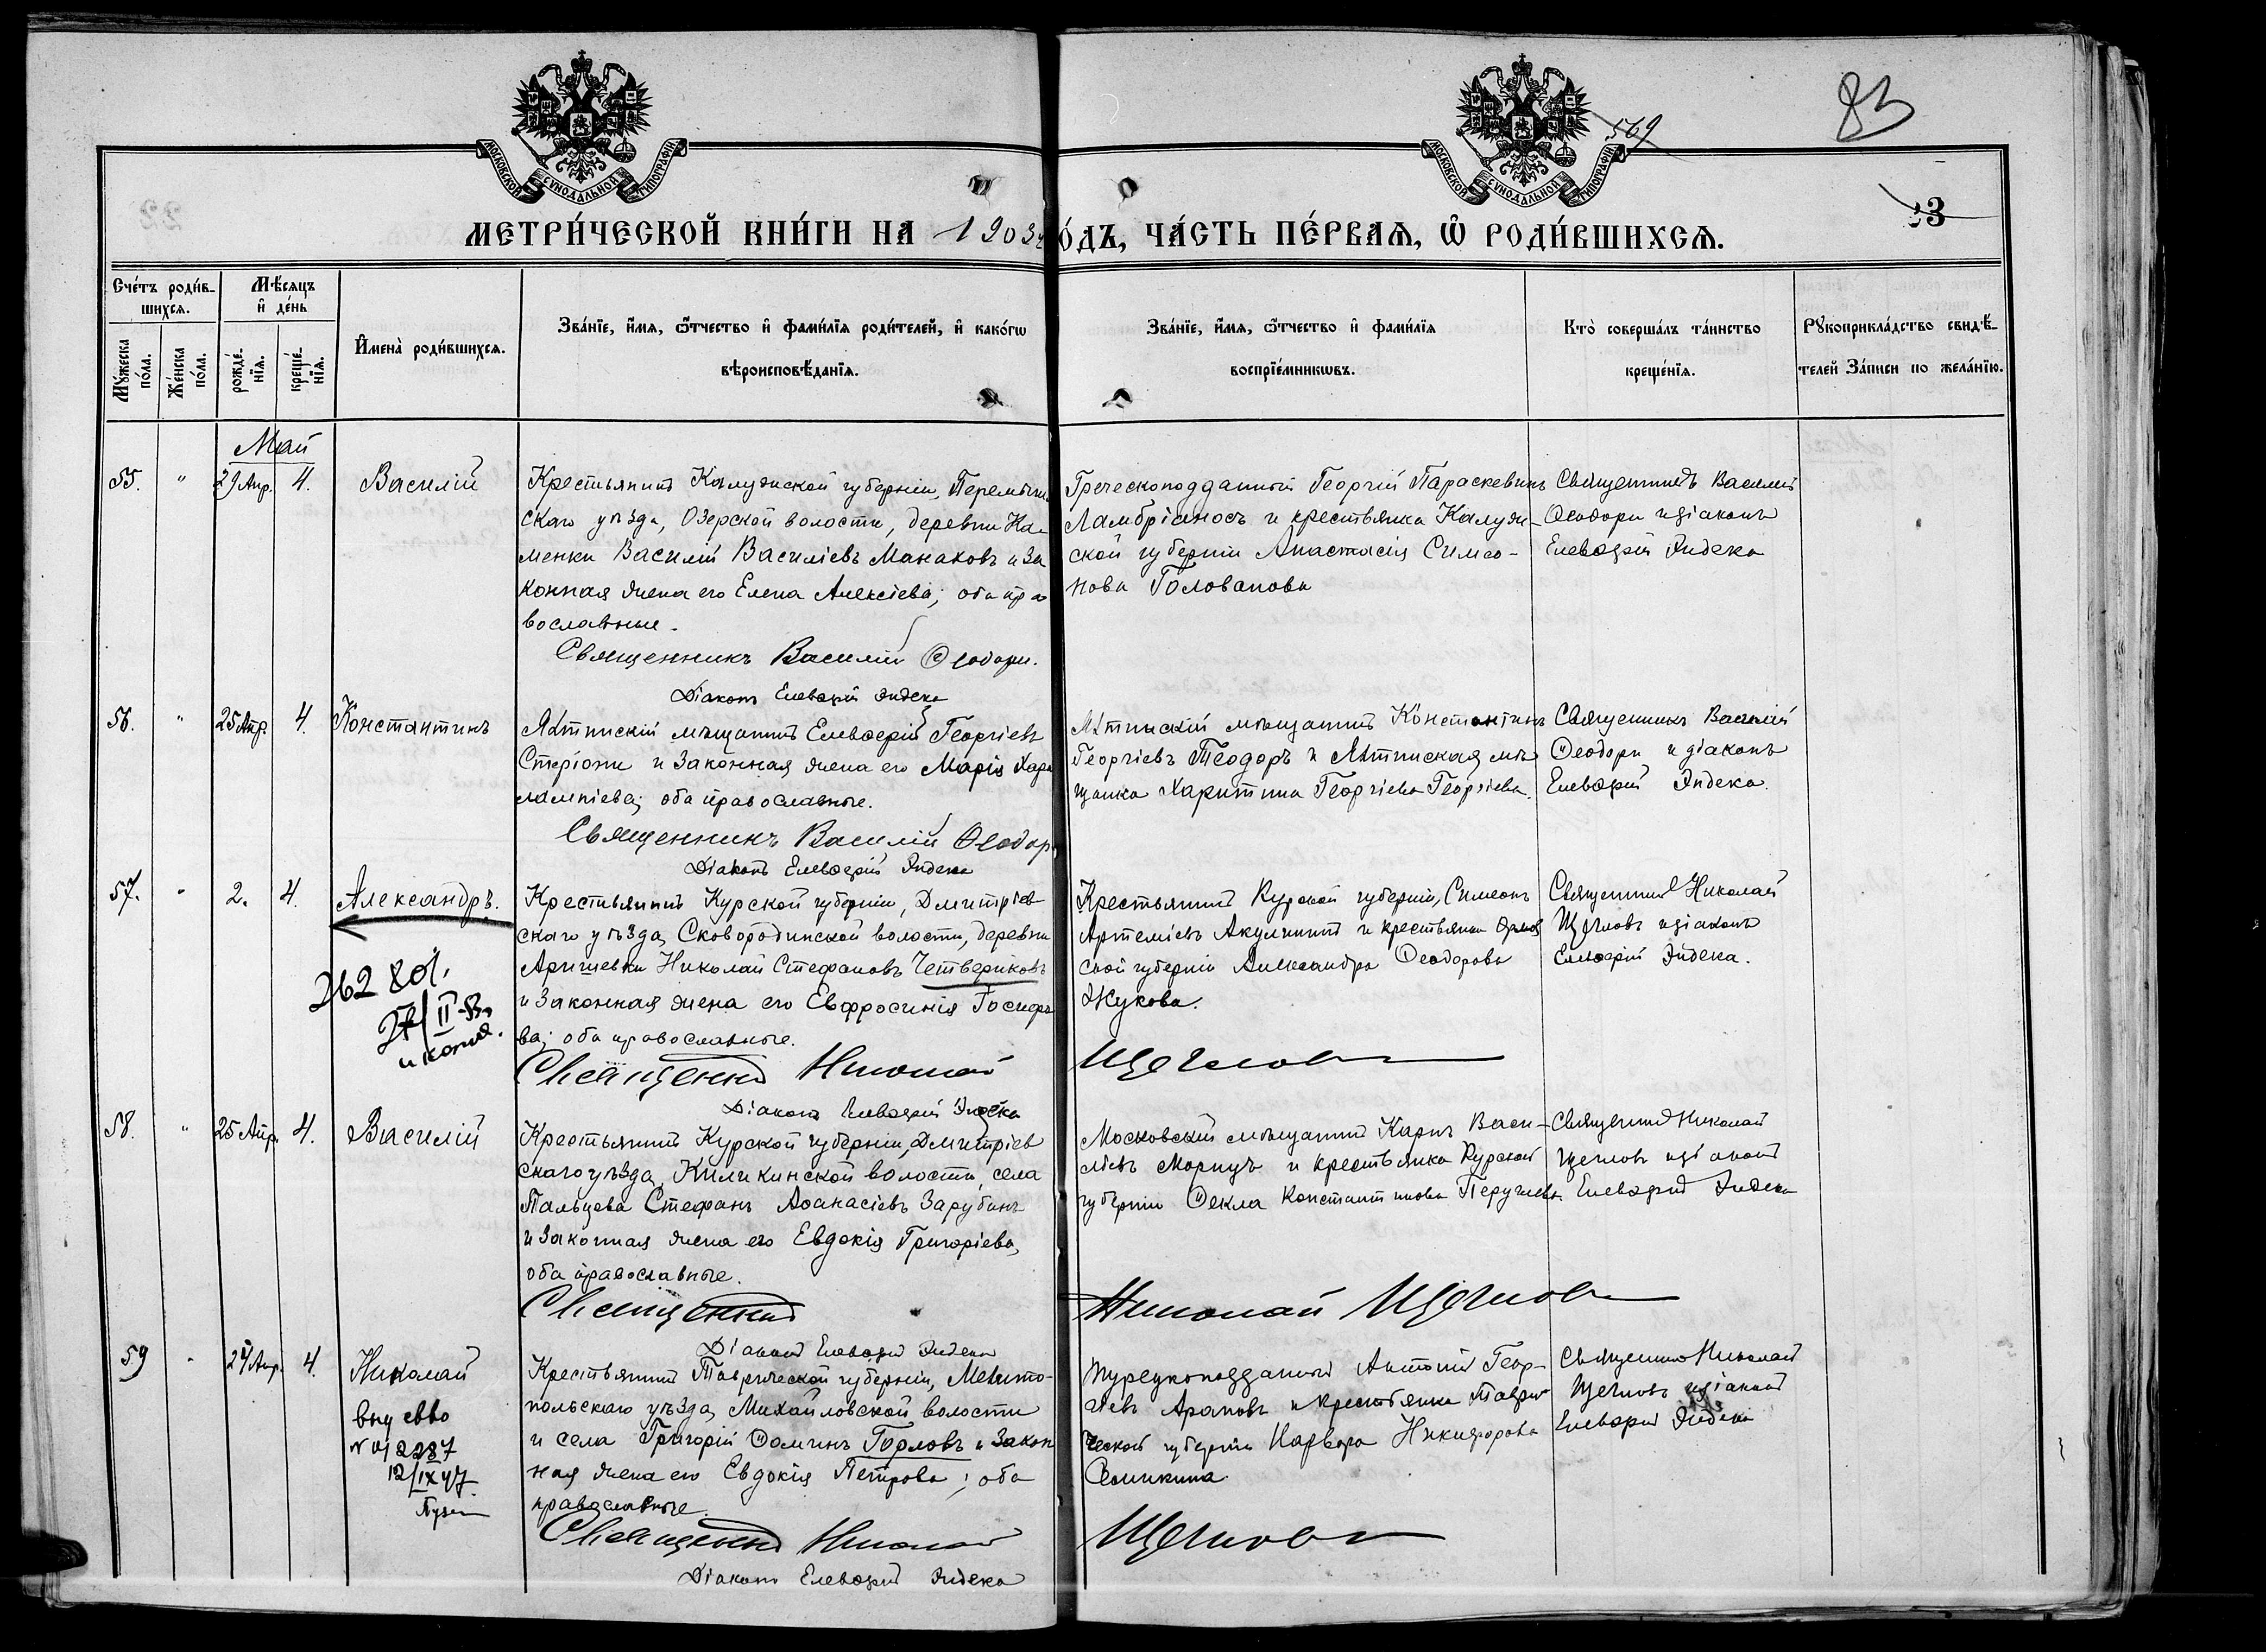 83
569
МОСКОВСКОЙ СѴНОДАЛЬНОЙ ТИПОГРАФІИ
МОСКОВСКОЙ СѴНОДАЛЬНОЙ ТИПОГРАФІИ
23
МЕТРИ́ЧЕСКОЙ КНИ́ГИ НА 1903 ГО́ДЪ, ЧА́СТЬ ПЕ́РВАѦ, Ѡ҆ РОДИ́ВШИХСѦ.
Сче́тъ роди́в-
шихсѧ.
Мꙋ́жеска по́ла.
Же́нска по́ла.
Мѣ́сѧцъ
и҆ де́нь
рожде́-нїѧ.
креще́-нїѧ.
И҆мена̀ роди́вшихсѧ.
Зва́нїе, и҆́мѧ, ѻ҆́тчество и҆ фами́лїѧ роди́телей, и҆ како́гѡ
вѣроисповѣ́данїѧ.
Зва́нїе, и҆́мѧ, ѻ҆́тчество и҆ фами́лїѧ
воспрїе́мникѡвъ.
Кто̀ соверша́лъ та́инство
креще́нїѧ.
Рꙋкоприкла́дство свидѣ́-
телей За́писи по жела́нїю.
Май
55. " 29 Апр. 4. Василій
Крестьянинъ Калужской губерніи, Перемышль
скаго уѣзда, Озерской волости, деревни Ка-
менки Василій Василіевъ Манаховъ и за
конная жена его Елена Алексіева; оба пра
вославные.
Священникъ Василій Ѳеодори.
Діаконъ Елевѳерій Яндека
Греческоподданный Георгій Параскевинъ
Ламбріаносъ и крестьянка Калуж-
ской губерніи Анастасія Симео-
нова Голованова
Священникъ Василій
Ѳеодори и діаконъ
Елевѳерій Яндека
56. " 25 Апр. 4. Константинъ
Ялтинскій мѣщанинъ Елевѳерій Георгіевъ
Стеріони и законная жена его Марія Хара
лампіева; оба православные.
Священникъ Василій Ѳеодори
Діаконъ Елевѳерій Яндека
Ялтинскій мѣщанинъ Константинъ
Георгіевъ Теодоръ и Ялтинская мѣ
щанка Харитина Георгіева Георгіева.
Священникъ Василій
Ѳеодори и діаконъ
Елевѳерій Яндека.
57. " 2. 4. Александръ.
262801.
27/II-53
и копия.
Крестьянинъ Курской губерніи, Дмитріев
скаго уѣзда, Сковородинской волости, деревни
Николай Стефановъ Четвериковъ
и законная жена его Евфросинія Іосифо
ва; оба православные.
Священникъ Николай Щегловъ
Діаконъ Елевѳерій Яндека
Крестьянинъ Курской губерніи, Симеонъ
Артеміевъ Акулининъ и крестьянка Орлов
ской губерніи Александра Ѳеодорова
Жукова.
Священникъ Николай
Щегловъ и діаконъ
Елевѳерій Яндека.
58. " 25 Апр. 4. Василій
Крестьянинъ Курской губерніи, Дмитріев
скаго уѣзда, Киликинской волости, села
Пальцева Стефанъ Аѳанасіевъ Зарубинъ
и законная жена его Евдокія Григоріева,
оба православные.
Священникъ Николай Щегловъ
Діаконъ Елевѳерій Яндека
Московскій мѣщанинъ Карпъ Васи-
ліевъ Морицъ и крестьянка Курской
губерніи Ѳекла Константинова
Священникъ Николай
Щегловъ и діаконъ
Елевѳерій Яндека
59 " 24 Апр. 4. Николай
№ 012287
12/IX 47
Крестьянинъ Таврической губерніи, Мелито-
польскаго уѣзда, Михайловской волости
и села Григорій Ѳоминъ Горловъ и закон
ная жена его Евдокія Петрова; оба
православные.
Священникъ Николай Щегловъ
Діаконъ Елевѳерій Яндека
Турецкоподданный Антоній Геор-
гіевъ Араповъ и крестьянка Таври-
ческой губерніи Варвара Никифорова
Священникъ Николай
Щегловъ и діаконъ
Елевѳерій Яндека